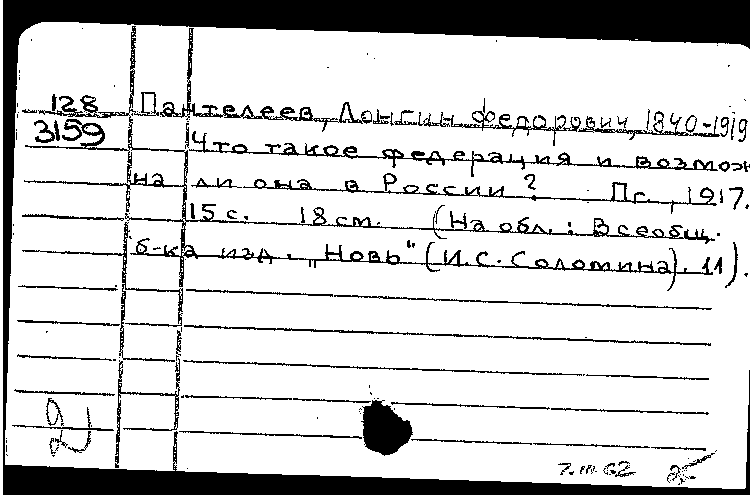 128 Пантелеев, Лонгин Федорович, 1840-1919
3159
Что такое федерация и возмож
на ли она в России? Пг., 1917.
15 с. 18 см. (На обл.: Всеобщ.
б-ка изд. „Новь" (И.С. Соломина). 11).
2
7.III.62